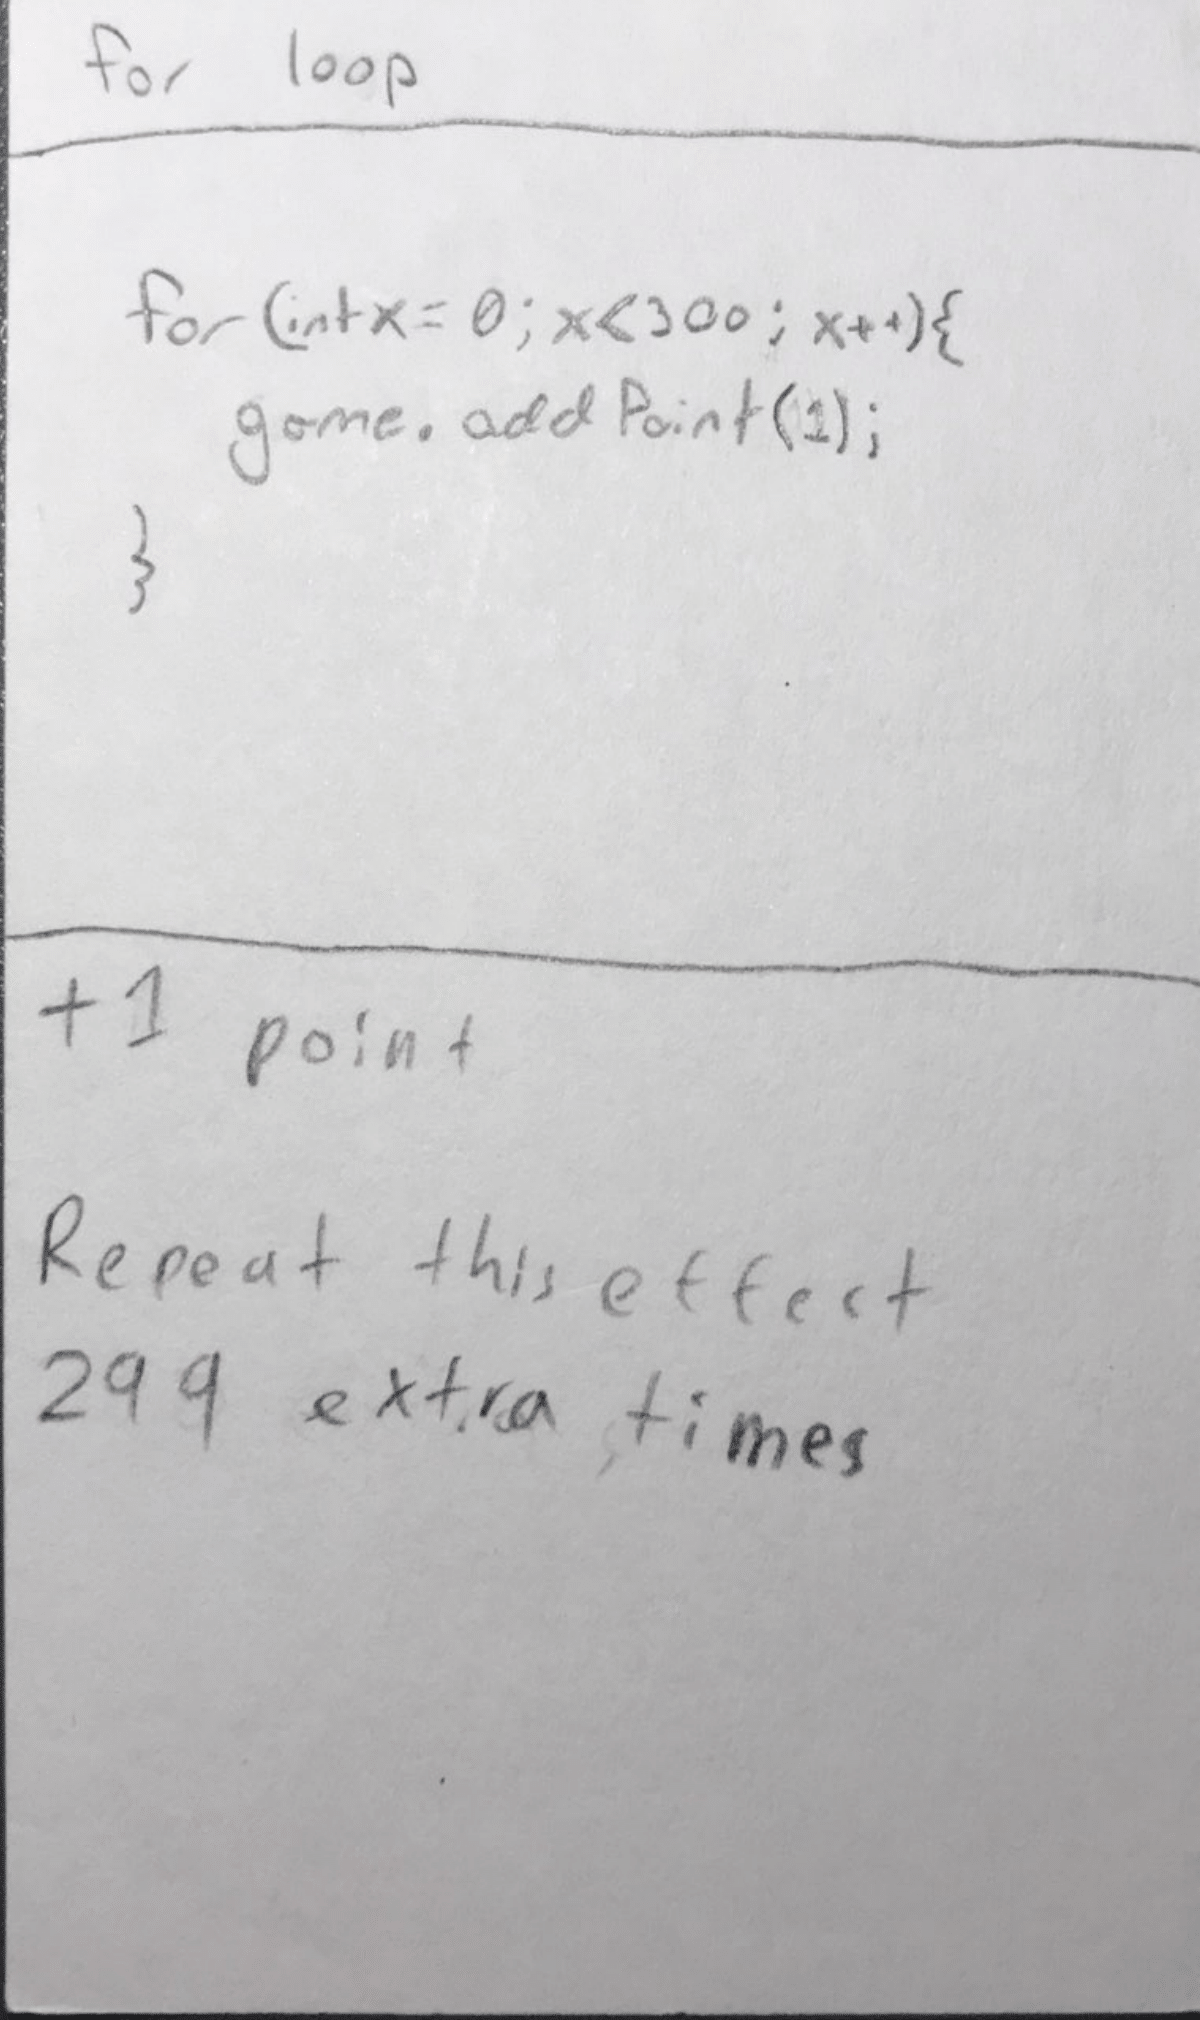 for loop
for (int x = 0; x < 300; x++){
game.addPoint(1);
}
+1 point
Repeat this effect
299 extra times